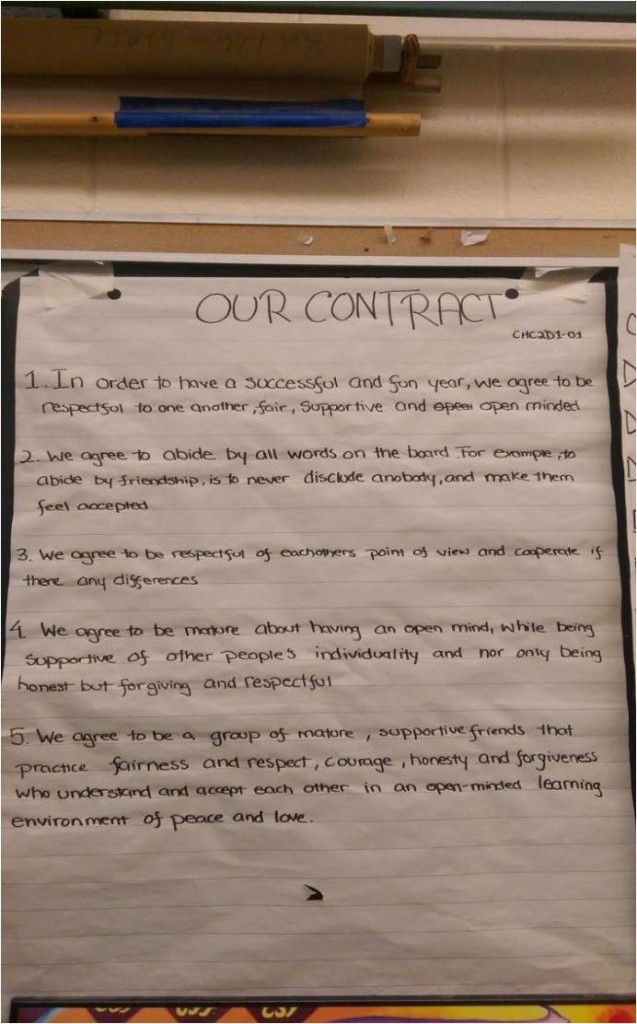 OUR CONTRACT
CHC2D1-01
1. In order to have a successful and fun year, we agree to be
respectful to one another, fair, supportive and open minded
2. We agree to abide by all words on the board. For example, to
abide by friendship, is to never disclude anobody, and make them
feel accepted
3. We agree to be respectful of eachothers point of view and cooperate if
there any differences
4. We agree to be mature about having an open mind, while being
supportive of other people's individuality and nor only being
honest but forgiving and respectful
5. We agree to be a group of mature, supportive friends that
practice fairness and respect, courage, honesty and forgiveness
who understand and accept each other in an open-minded learning
environment of peace and love.